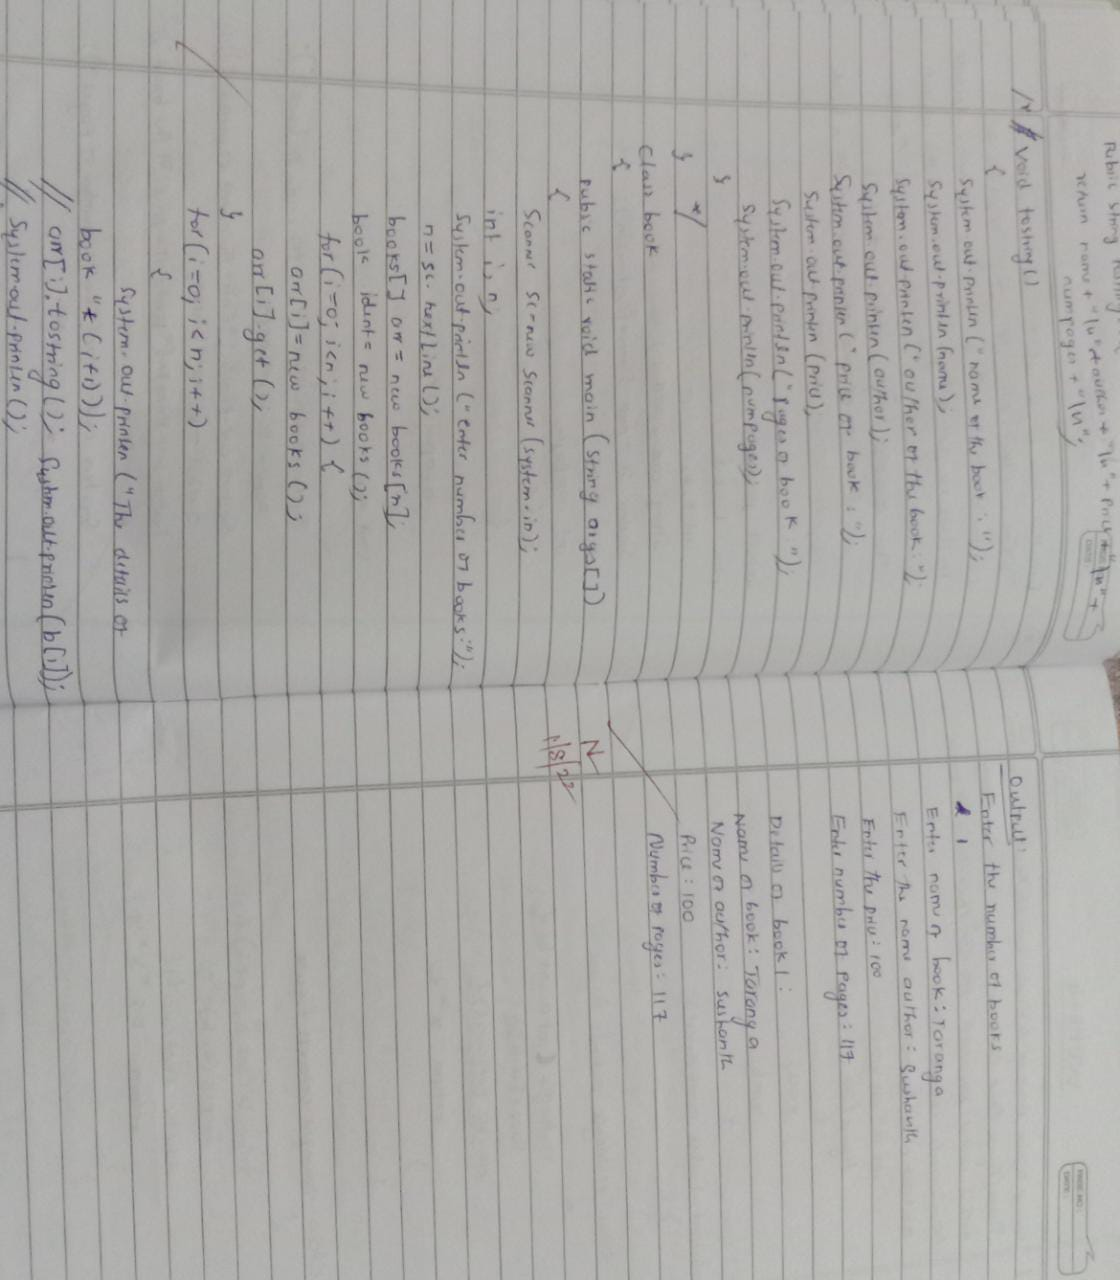 Public String
return name + "\n" + author + "\n" + price + "\n" +
numpages + "\n";
/* void tostring()
{
System.out.println ("name of the book : ");
System.out.println (name);
System.out.println ("author of the book : ");
System.out.println (author);
System.out.println ("price of book : ");
System.out.println (price);
System.out.println ("pages of book : ");
System.out.println (numpages);
}
} */
Class book
{
public static void main (String args[])
{
Scanner sc = new Scanner (System.in);
int i, n;
System.out.println ("enter number of books:");
n = sc. nextLine();
books[] arr = new books[n];
book ident = new books();
for (i=0; i<n; i++) {
arr[i] = new books();
arr[i].get();
}
for (i=0; i<n; i++)
{
System.out.println ("The details of
book "+ (i+1));
// arr[i].tostring(); System.out.println(b[i]);
// System.out.println();
Output:
Enter the number of books
1
Enter name of book : Taranga
Enter the name author : Sushanth
Enter the price : 100
Enter number of Pages : 117
Details of book 1 :
Name of book : Taranga
Name of author : Sushanth
Price : 100
Number of Pages : 117
N
1/8/22